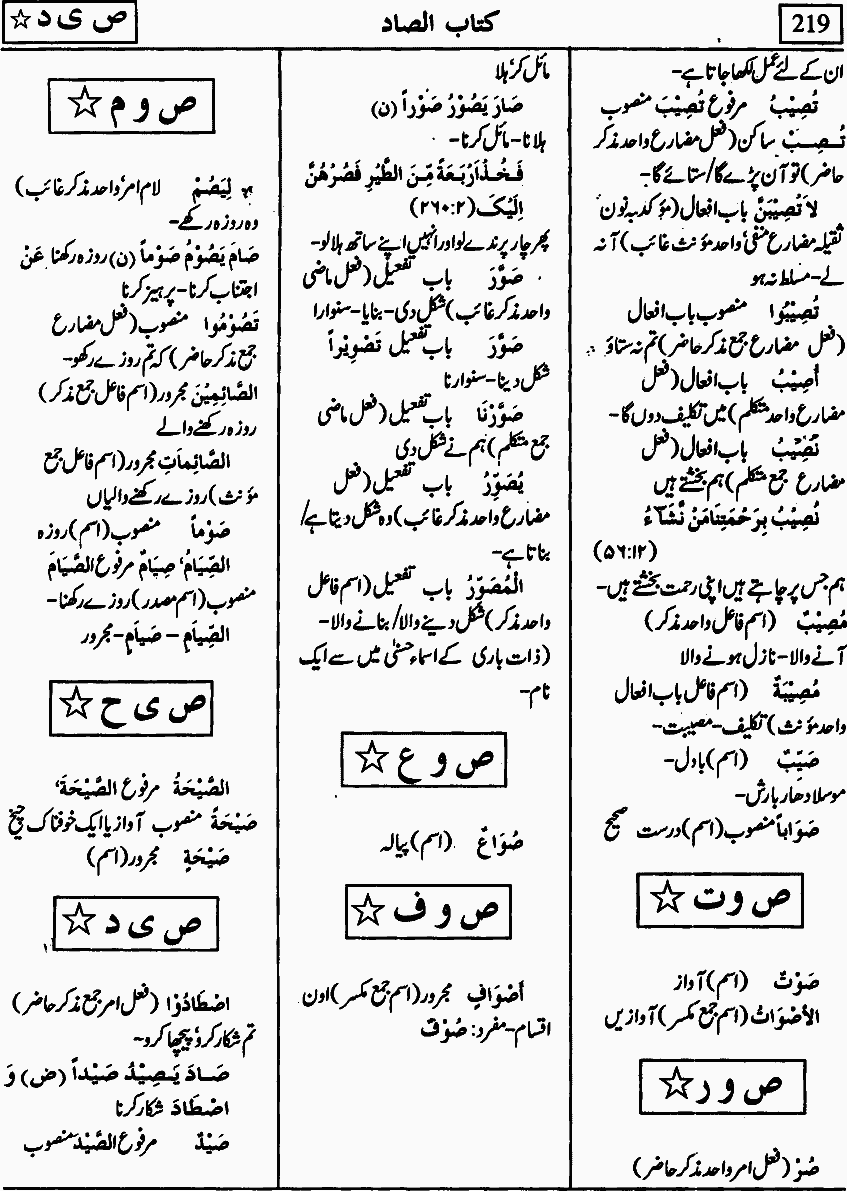 219
کتاب الصاد
ص ی د ☆
ان کے لئے عمل لکھا جاتا ہے۔
تُصِیْبُ مرفوع تُصِیْبَ منصوب
تُصِبْ ساکن (فعل مضارع واحد مذکر
حاضر) تو آن پڑے گا/ستائے گا۔
لَا تُصِیْبَنَّ باب افعال (مؤکد بہ نون
ثقیلہ مضارع منفی واحد مؤنث غائب) آ نہ
لے۔ مسلط نہ ہو
تُصِیْبُوا منصوب باب افعال
(فعل مضارع جمع مذکر حاضر) تم نہ ستاؤ
أُصِیْبُ باب افعال (فعل
مضارع واحد متکلم) میں تکلیف دوں گا۔
نُصِیْبُ باب افعال (فعل
مضارع جمع متکلم) ہم بخشتے ہیں
نُصِیْبُ بِرَحْمَتِنَا مَنْ نَّشَآءُ
(۵۶:۱۲)
ہم جس پر چاہتے ہیں اپنی رحمت بخشتے ہیں۔
مُصِیْبٌ (اسم فاعل واحد مذکر)
آنے والا۔ نازل ہونے والا
مُصِیْبَةٌ (اسم فاعل باب افعال
واحد مؤنث) تکلیف۔ مصیبت۔
صَیِّبٌ (اسم) بادل۔
موسلا دھار بارش۔
صَوَاباً منصوب (اسم) درست صحیح
ص و ت ☆
صَوْتٌ (اسم) آواز
الأصْوَاتُ (اسم جمع مکسر) آوازیں
ص و ر ☆
صُرْ (فعل امر واحد مذکر حاضر)
مائل کر ہلا
صَارَ یَصُوْرُ صَوْراً (ن)
ہلانا۔ مائل کرنا۔
فَخُذْ اَرْبَعَةً مِّنَ الطَّیْرِ فَصُرْهُنَّ
اِلَیْکَ (۲۶۰:۲)
پھر چار پرندے لو اور انہیں اپنے ساتھ ہلا لو۔
صَوَّرَ باب تفعیل (فعل ماضی
واحد مذکر غائب) شکل دی۔ بنایا۔ سنوارا
صَوَّرَ باب تفعیل تَصْوِیْراً
شکل دینا۔ سنوارنا
صَوَّرْنَا باب تفعیل (فعل ماضی
جمع متکلم) ہم نے شکل دی
یُصَوِّرُ باب تفعیل (فعل
مضارع واحد مذکر غائب) وہ شکل دیتا ہے/
بناتا ہے۔
الْمُصَوِّرُ باب تفعیل (اسم فاعل
واحد مذکر) شکل دینے والا/بنانے والا۔
(ذات باری کے اسماء حسنٰی میں سے ایک
نام۔
ص و ع ☆
صُوَاعٌ (اسم) پیالہ
ص و ف ☆
أصْوَافِ مجرور (اسم جمع مکسر) اون
اقسام۔ مفرد: صُوْفٌ
ص و م ☆
لِیَصُمْ لام امر، واحد مذکر غائب)
وہ روزہ رکھے۔
صَامَ یَصُوْمُ صَوْماً (ن) روزہ رکھنا عَنْ
اجتناب کرنا۔ پرہیز کرنا
تَصُوْمُوا منصوب (فعل مضارع
جمع مذکر حاضر) کہ تم روزے رکھو۔
الصَّائِمِیْنَ مجرور (اسم فاعل جمع مذکر)
روزہ رکھنے والے
الصَّائِمَاتِ مجرور (اسم فاعل جمع
مؤنث) روزے رکھنے والیاں
صَوْماً منصوب (اسم) روزہ
الصِّیَامُ، صِیَامٌ مرفوع الصِّیَامَ
منصوب (اسم مصدر) روزے رکھنا۔
الصِّیَامِ – صِیَامٍ – مجرور
ص ی ح ☆
الصَّیْحَةُ مرفوع الصَّیْحَةَ،
صَیْحَةً منصوب آواز یا ایک خوفناک چیخ
صَیْحَةٍ مجرور (اسم)
ص ی د ☆
اصْطَادُوْا (فعل امر جمع مذکر حاضر)
تم شکار کرو، پیچھا کرو۔
صَادَ یَصِیْدُ صَیْداً (ض) وَ
اصْطَادَ شکار کرنا
صَیْدٌ مرفوع الصَّیْدَ منصوب